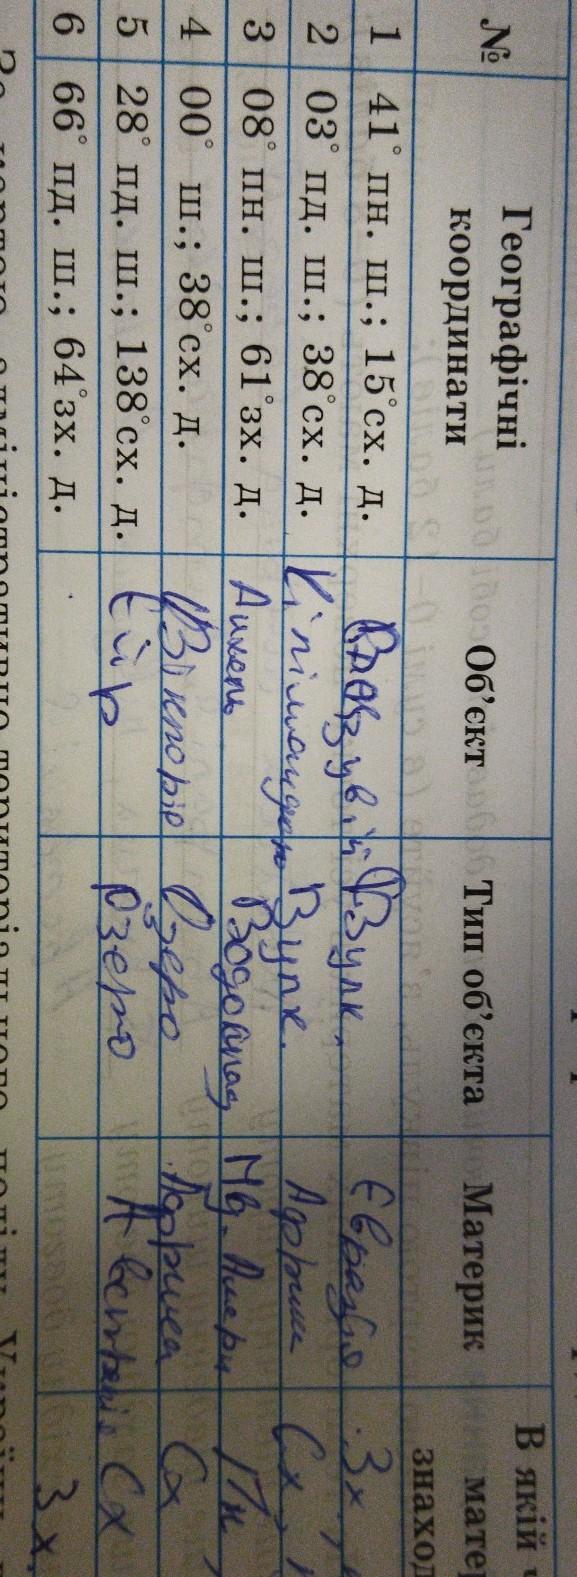 № Географічні координати Об'єкт Тип об'єкта Материк В якій
матер
знаход
1 41° пн. ш.; 15°сх. д. Везувій Вулк. Євразія Зх.
2 03° пд. ш.; 38°сх. д. Вулк. Африка Сх.
3 08° пн. ш.; 61°зх. д. Анхель Водоспад Пд. Амери Пн
4 00° ш.; 38°сх. д. Вікторія Озеро Африка Сх
5 28° пд. ш.; 138°сх. д. Ейр Озеро Австралія Сх
6 66° пд. ш.; 64°зх. д. Зх.
адміністративно-територіального поділу Україн